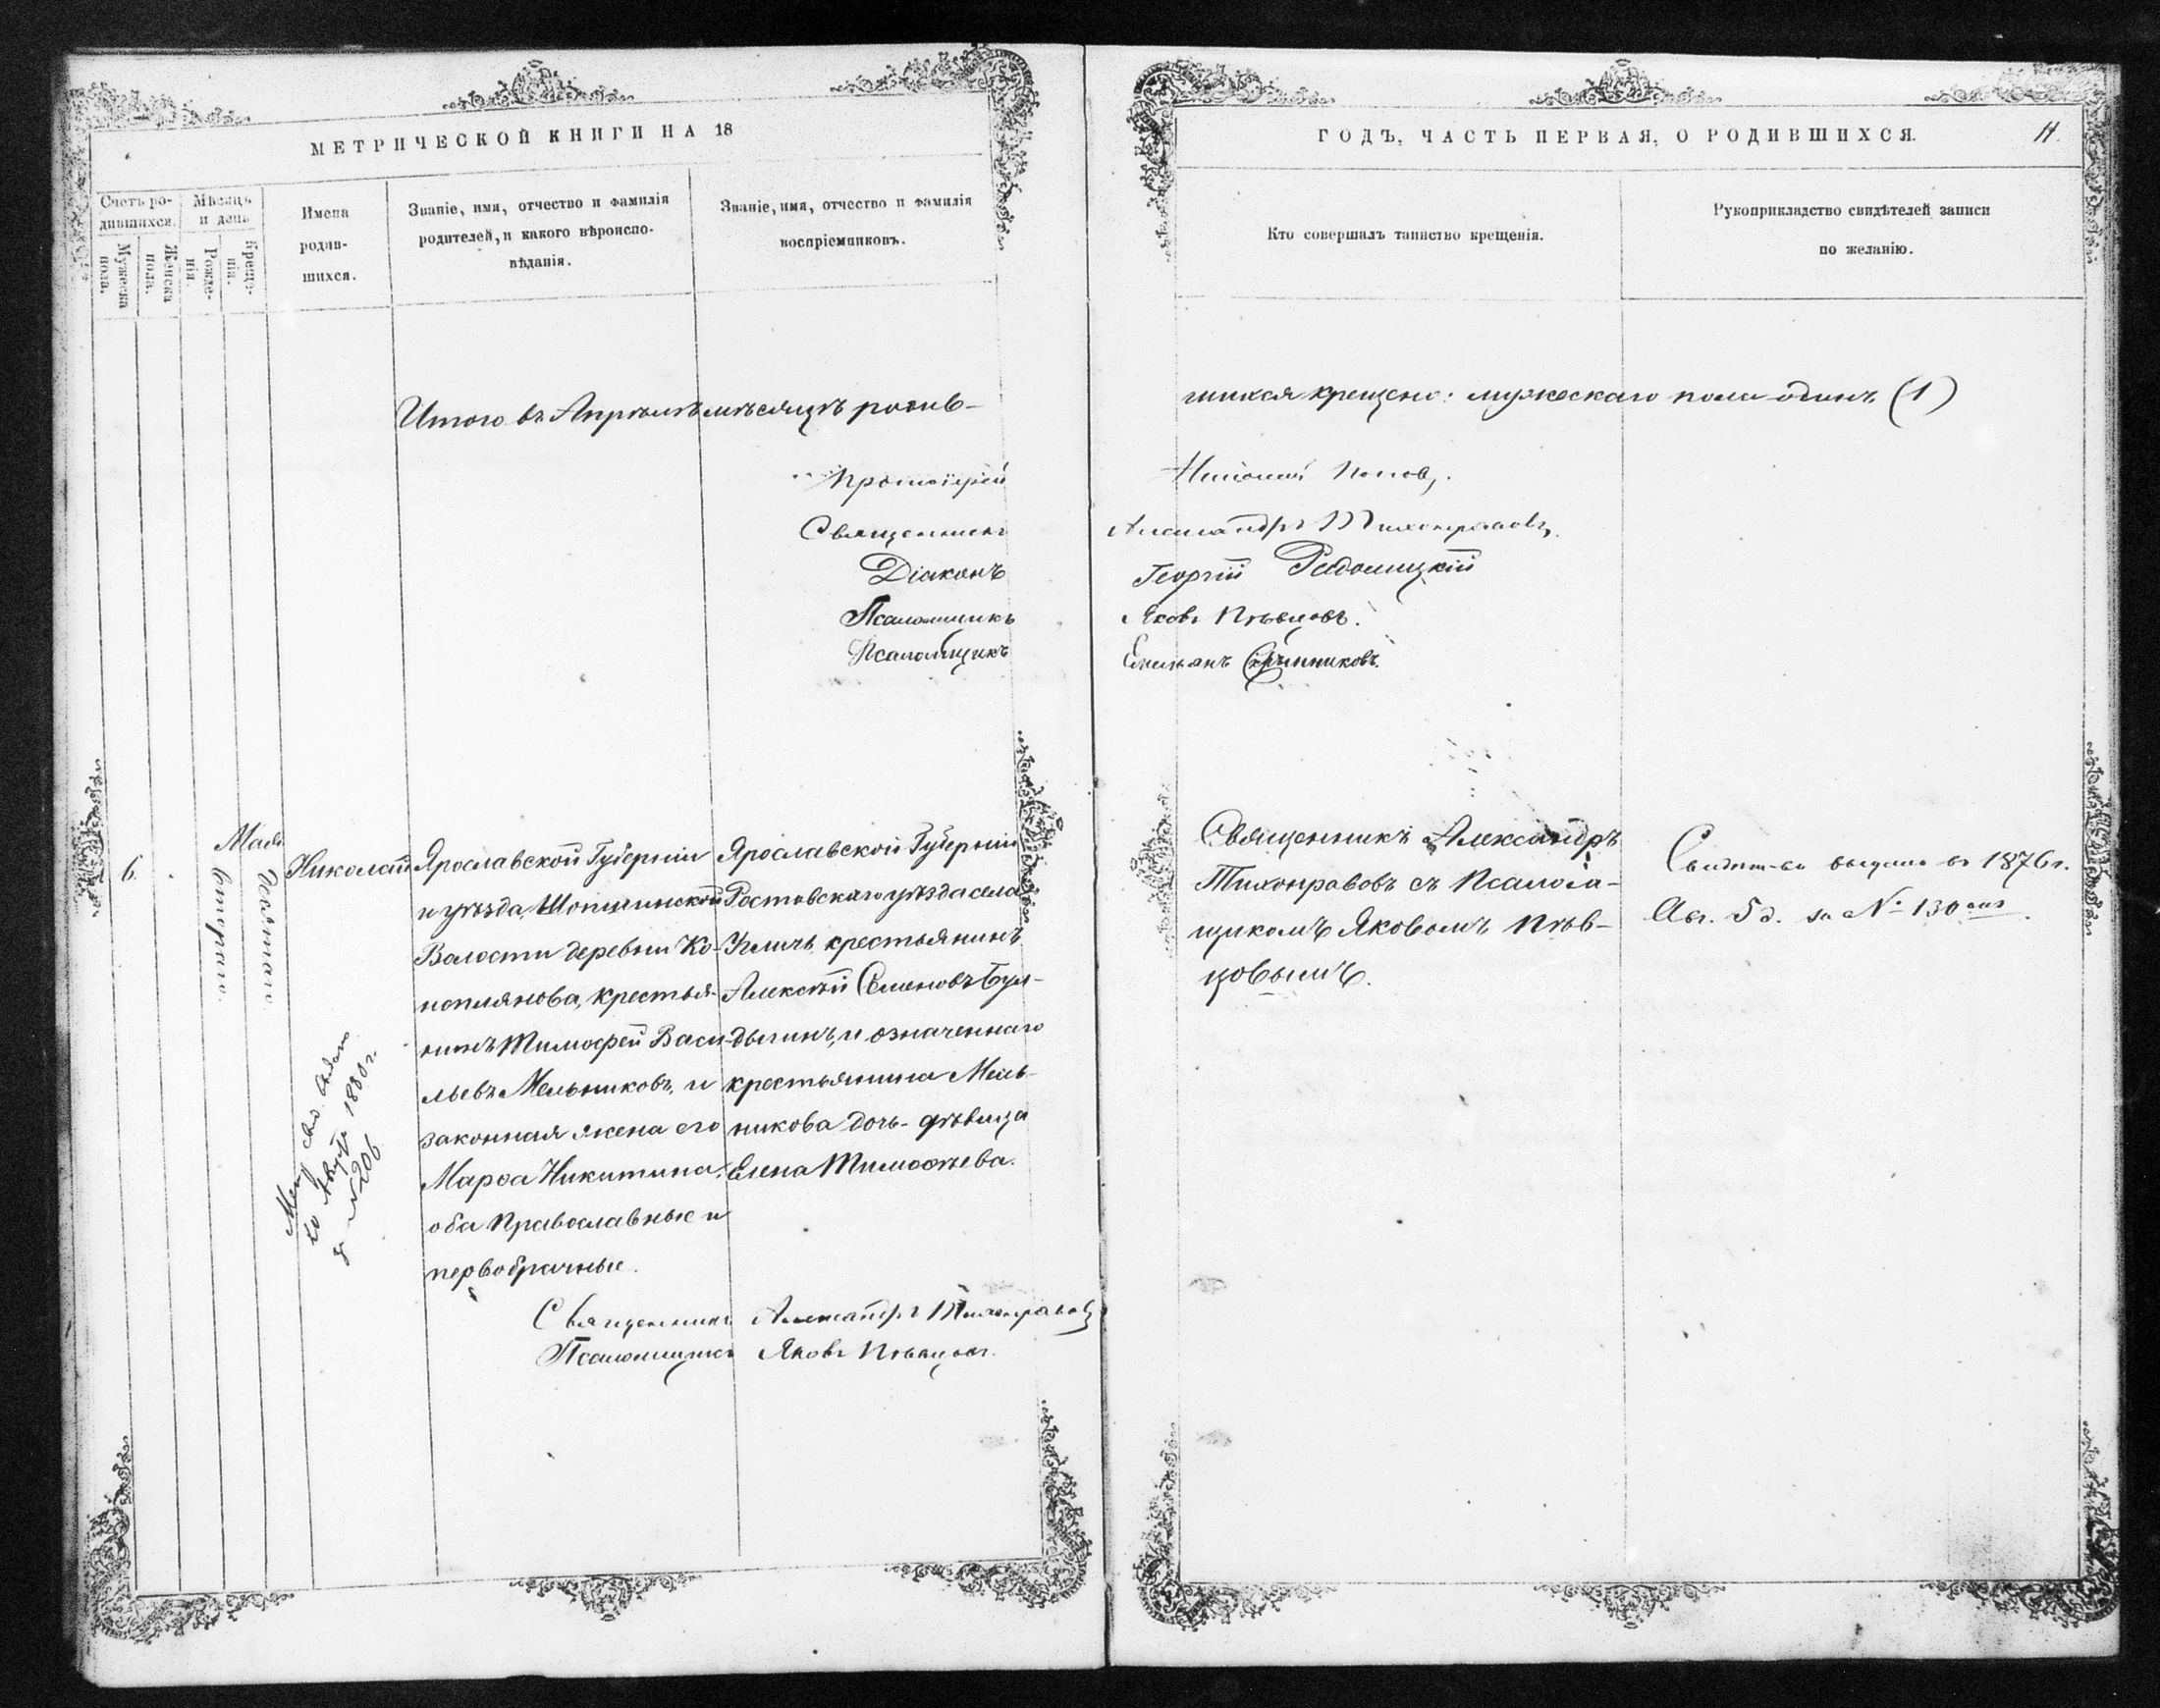 МЕТРИЧЕСКОЙ КНИГИ НА 18
Счетъ ро-
дившихся.
Мужеска
пола.
Женска
пола.
Мѣсяцъ
и день
Рожде-
нія.
Креще-
нія.
Имена
родив-
шихся.
Званіе, имя, отчество и фамилія
родителей, и какого вѣроиспо-
вѣданія.
Званіе, имя, отчество и фамилія
воспріемниковъ.
Итого въ Апрѣлѣ мѣсяцѣ родив-
Протоіерей
Священникъ
Діаконъ
Псаломщикъ
Псаломщикъ
6.
Мая
Втораго.
Десятаго.
Николай
Ярославской Губерніи
и уѣзда,
Волости деревни Ко-
ноплянова, крестья-
нинъ Тимофей Васи-
льевъ Мельниковъ, и
законная жена его
Марѳа Никитина,
оба Православные и
первобрачные.
Ярославской Губерніи
Ростовскаго уѣзда села
Угличь, крестьянинъ
Алексѣй Семеновъ Бул-
дыгинъ, и означеннаго
крестьянина Мель-
никова дочь - дѣвица
Елена Тимоѳѣева.
1880 г.
№ 206
Священникъ Александръ Тихонравовъ
Псаломщикъ Яковъ Пѣвцовъ.
ГОДЪ, ЧАСТЬ ПЕРВАЯ, О РОДИВШИХСЯ.
11.
Кто совершалъ таинство крещенія.
Рукоприкладство свидѣтелей записи
по желанію.
шихся крещено: мужескаго пола одинъ (1)
Николай Поповъ.
Александръ Тихонравовъ.
Георгій
Яковъ Пѣвцовъ.
Емельянъ
Священникъ Александръ
Тихонравовъ съ Псалом-
щикомъ Яковомъ Пѣв-
цовымъ.
Свидѣт-во выдано въ 1876 г.
Авг. 5 д. за № 130